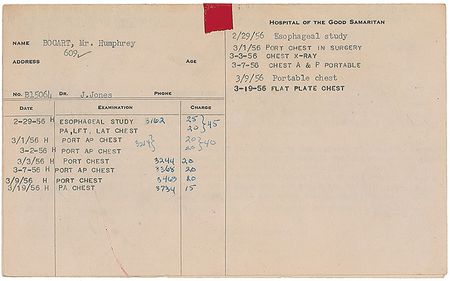 HOSPITAL OF THE GOOD SAMARITAN
NAME BOGART, Mr. Humphrey
609
ADDRESS AGE
No. B15064 DR. J.Jones PHONE
DATE EXAMINATION CHARGE
2-29-56 H ESOPHAGEAL STUDY 3162 25
PA,LFT. LAT CHEST 20 } 45
3/1/56 H PORT AP CHEST 20
3-2-56 H PORT AP CHEST 20 } 40
3/3/56 H PORT CHEST 3244 20
3-7-56 H PORT AP CHEST 3368 20
3/9/56 H PORT CHEST 3463 20
3/19/56 H PA CHEST 3734 15
2/29/56 Esophageal study
3/1/56 PORT CHEST IN SURGERY
3-3-56 CHEST X-RAY
3-7-56 CHEST A & P PORTABLE
3/9/56 Portable chest
3-19-56 FLAT PLATE CHEST